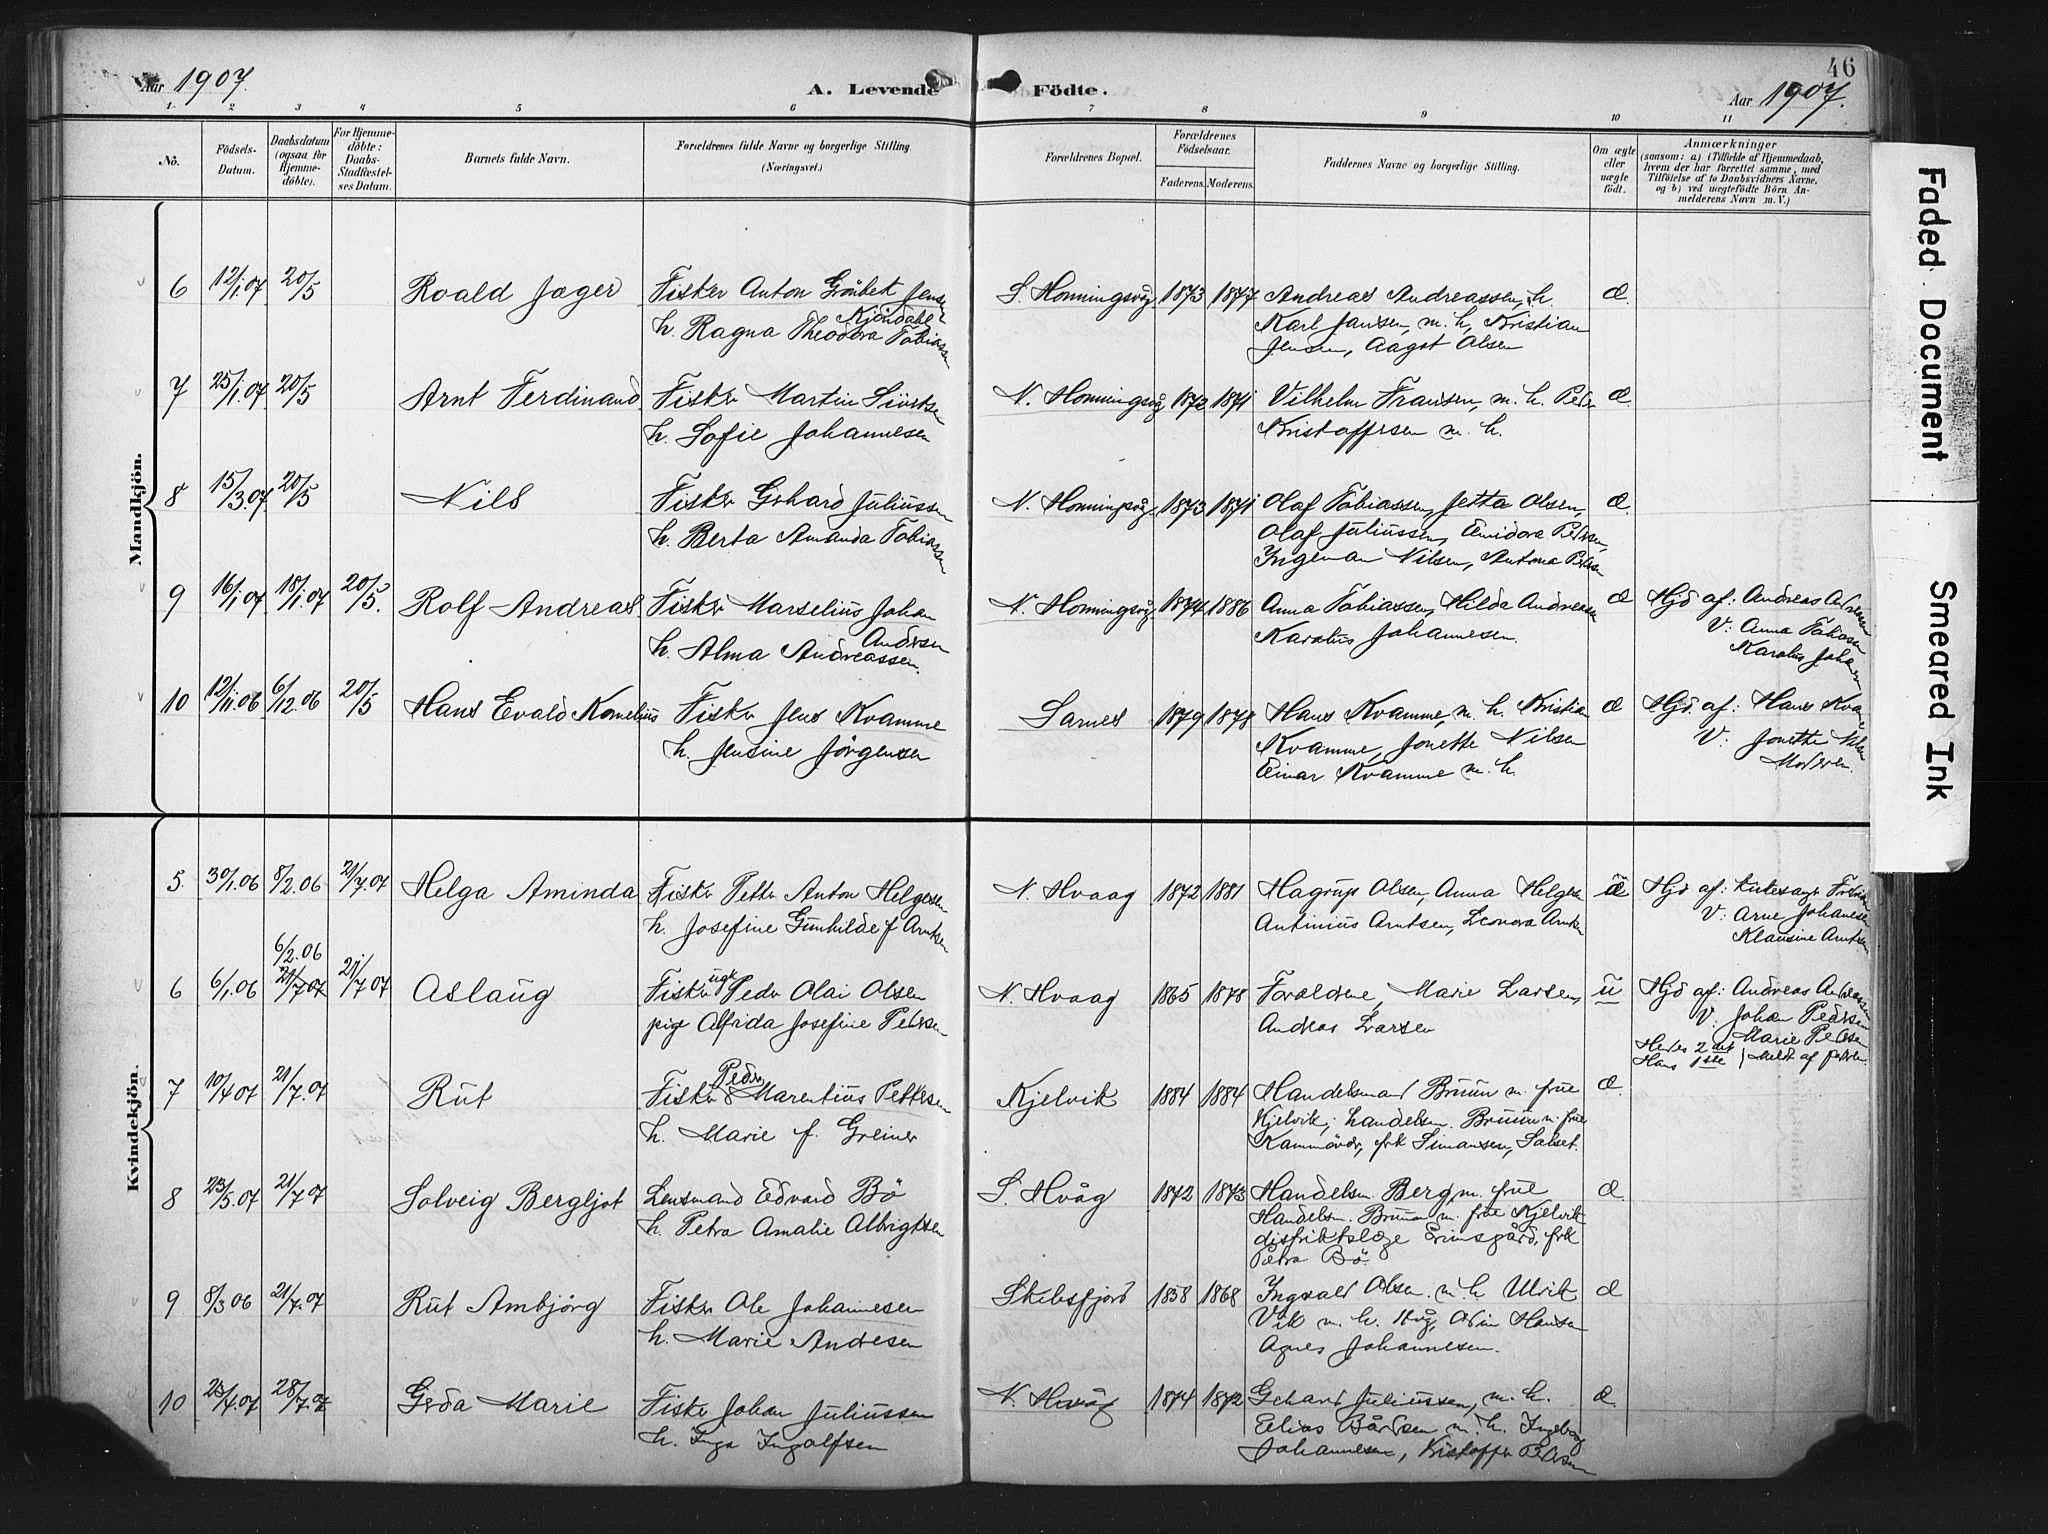 46
Aar 1907.
A. Levende Födte.
Aar 1907.
1 2 3 4 5 6 7 8 9 10 11
No.
Födsels-
Datum.
Daabsdatum
(ogsaa för
Hjemme-
döbte).
For Hjemme-
döbte:
Daabs-
Stadfæstel-
ses Datum.
Barnets fulde Navn.
Forældrenes fulde Navne og borgerlige Stilling.
(Næringsvei.)
Forældrenes Bopæl.
Forældrenes
Födselsaar.
Faderens. Moderens.
Faddernes Navne og borgerlige Stilling.
Om ægte
eller
uægte
födt.
Anmærkninger
(saasom: a) i Tilfælde af Hjemmedaab,
hvem der har forrettet samme, med
Tilföielse af to Daabsvidners Navne,
og b) ved uægtefödte Börn An-
melderens Navn m. V.)
Mandkjön.
6 12/1.07 20/5 Roald Jæger Fisker Anton Grönbek Jensen S. Honningsvåg 1873 1877 Andreas Andreassen, h. æ.
Kjöndahl
h. Ragna Theodora Tobiassen Karl Jansen, m. h, Kristian
Jensen, Aagot Olsen
7 25/1.07 20/5 Arnt Ferdinand Fisker Martin Sivertsen N. Honningsvåg 1872 1871 Vilhelm Fransen, m. h. Peder æ.
h. Sofie Johannesen Kristoffersen m. h.
8 15/3.07 20/5 Nils Fisker Gerhard Juliussen N. Honningsvåg 1873 1871 Olaf Tobiassen, Jetta Olsen, æ.
h. Berta Amanda Tobiassen Olaf Juliussen, Emidora Pedersen,
Ingeman Nilsen, Antona Pedersen
9 16/1.07 18/1.07 20/5. Rolf Andreas Fisker Marselius Johan N. Honningsvåg 1874 1886 Anna Tobiassen, Hilda Andreassen æ Hjd af: Andreas Andreassen
Andersen
h. Alma Andreassen. Karolus Johannesen. V: Anna Tobiassen
Karolus Johansen
10 12/11.06 6/12.06 20/5 Hans Evald Kornelius Fisker Jens Kvamme Sarnes 1879 1878 Hans Kvamme, m. h. Kristian æ Hjd. af: Hans Kvamme
h. Jensine Jörgensen Kvamme, Jonette Nilsen V: Jonette Nilsen
Einar Kvamme m. h. Moderen.
Kvindekjön.
5. 30/1.06 8/2.06 21/7.07 Helga Aminda Fisker Petter Anton Helgesen N. Hvaag 1872 1881 Hagrup Olsen, Anna Helgesen æ Hjd af: Kirkesanger
h. Josefine Gunhilde f Arntsen Antinius Arntsen, Leonora Arntsen V: Arne Johannesen
Klausine Arntsen
6 6/1.06 6/2.06 21/7.07 21/7 07 Aslaug Fisker ugk Peder Olai Olsen N. Hvaag 1865 1878 Forældrene, Marie Larsen, u Hjd af: Andreas Andreassen
pige Alfrida Josefine Pedersen Andreas Larsen V: Johan Pedersen
Marie Pedersen
Hendes 2det
Hans 1ste } Meldt af faderen.
7 10/4 07 21/7.07 Rut Fisker Peder Marentius Pettersen Kjelvik 1884 1884 Handelsmand Bruun m. frue æ.
h. Marie f. Greiner Kjelvik; handelsm. Bruun m. frue
Kammövær, frk Simonsen, Solset.
8 23/5.07 21/7 07 Solveig Bergljot Lensmand Edvard Bö S. Hvåg 1872 1873 Handelsm. Berg, m. frue æ
h. Petra Amalie Albrigtsen Handelsm. Bruun m. frue Kjelvik
distriktslæge Grimsgård, frk
Petra Bö.
9 8/3 06 21/7.07 Rut Ambjörg Fisker Ole Johannesen Skibsfjord 1858 1868 Ingvald Olsen. m. h Ulrik æ
h. Marie Andresen Vik m. h. Hvåg, Odin Hansen
Agnes Johannesen.
10 23/4.07 28/7.07 Gerda Marie Fisker Johan Juliussen N. Hvåg 1874 1872 Gerhard Juliussen, m. h. æ.
h. Inga Ingolfsen Elias Bårdsen m. h. Ingeborg
Johannesen, Kristoffer Pedersen
Faded Document
Smeared Ink